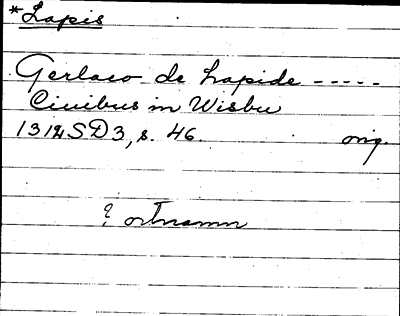 *Lapis
Gerlaco de Lapide -----
Ciuibus in Wisbu
1312 SD3, s. 46. orig.
? ortnamn